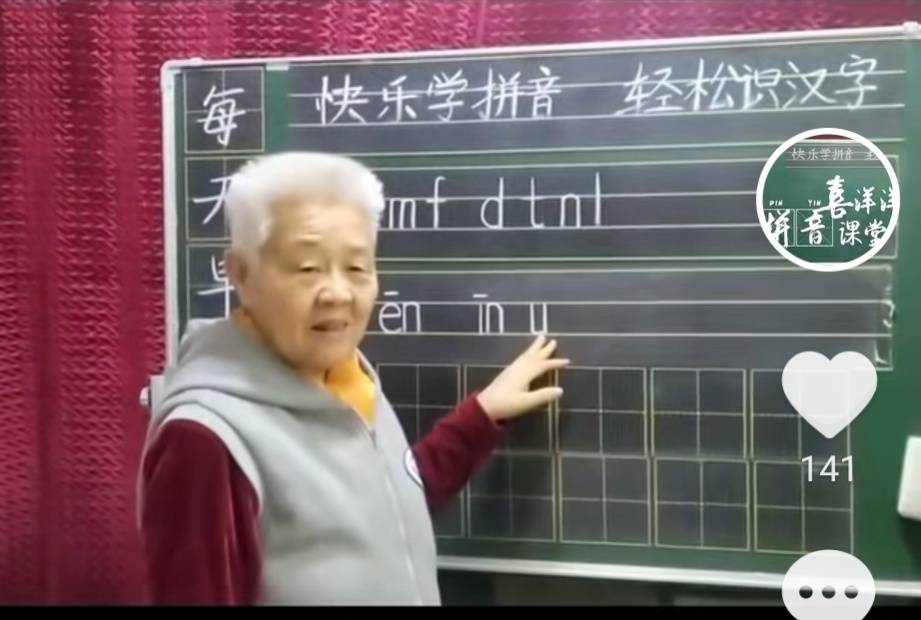 每 快乐学拼音 轻松识汉字
天 mf d t n l
早 ēn īn u
快乐学拼音
PIN YIN 喜洋洋
拼音 课堂
141